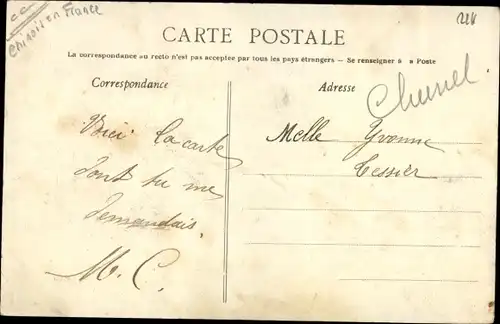 CC
Chinois en France
224
CARTE POSTALE
La correspondance au recto n'est pas acceptée par tous les pays étrangers — Se renseigner à a Poste
Correspondance
Adresse
Voici la carte
dont tu me
demandais.
M. C.
Melle Yvonne
Tessier